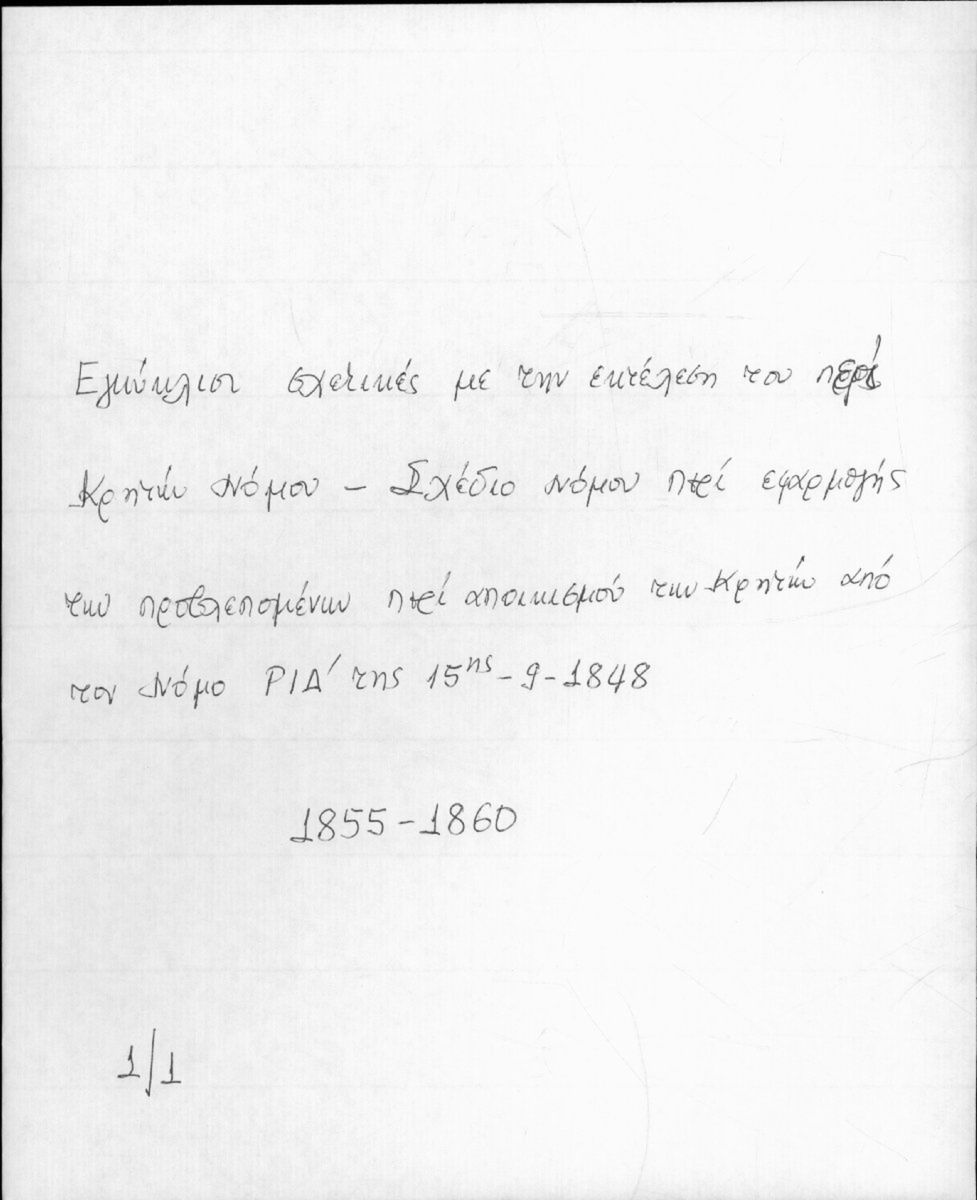 Εγκύκλιοι σχετικές με την εκτέλεση του περί
Κρητών Νόμου – Σχέδιο νόμου περί εφαρμογής
των προβλεπομένων περί αποικισμού των Κρητών από
τον Νόμο ΡΙΔ΄ της 15ης-9-1848
1855-1860
1/1